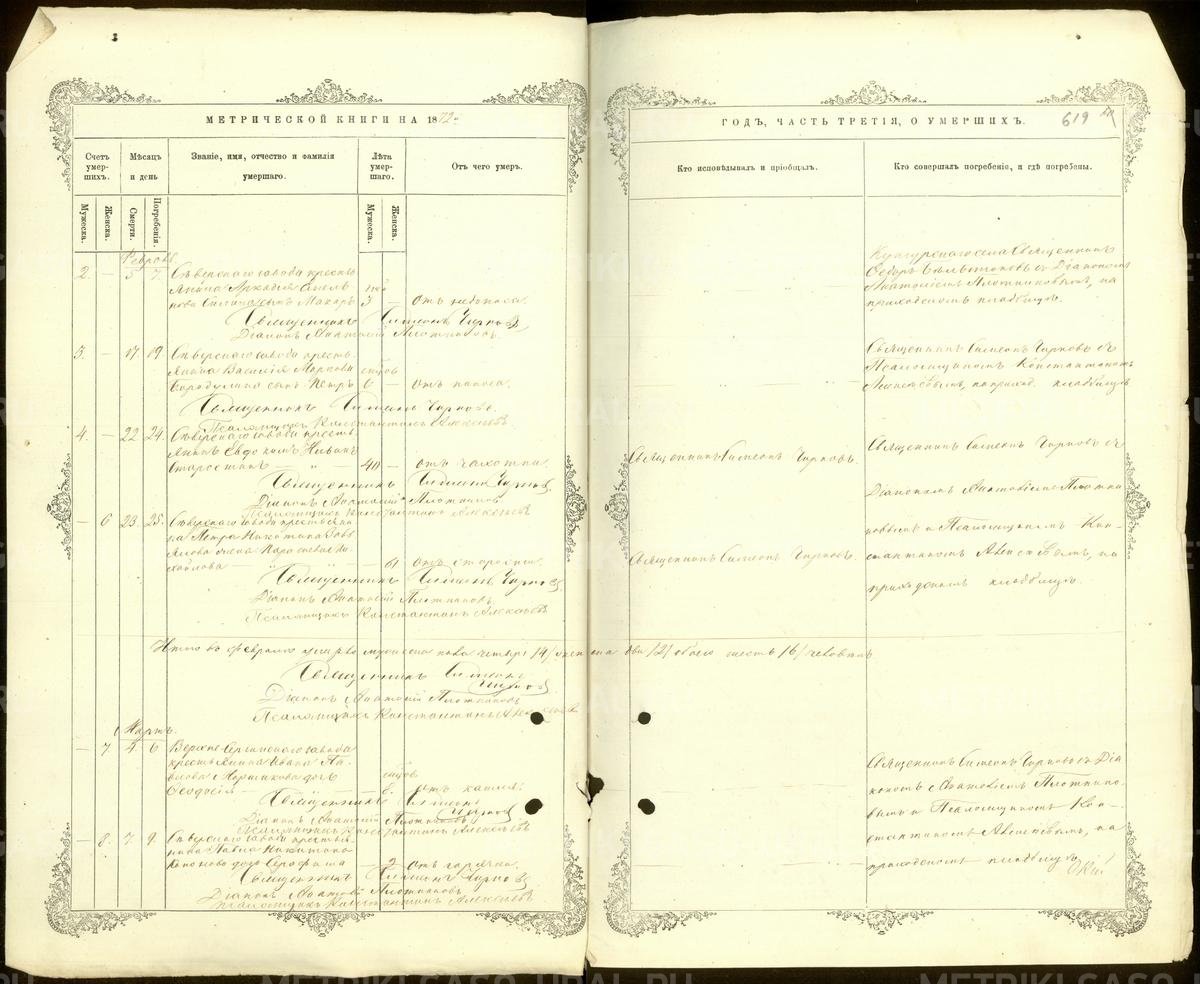 МЕТРИЧЕСКОЙ КНИГИ НА 1872й
Счетъ умер-шихъ.
Мѣсяцъ и день
Званіе, имя, отчество и фамилія умершаго.
Лѣта умер-шаго.
Отъ чего умеръ.
Мужеска.
Женска.
Смерти.
Погребенія.
Мужеска.
Женска.
Февраль.
2. — 5 7 Сѣверскаго завода кресть
янина Аркадія
сынъ Макаръ 3 — отъ
Священникъ Симеонъ Чирковъ
Діаконъ Анатолій Плотниковъ.
3. — 17. 19. Сѣверскаго завода кресть-
янина Василія Маркова
Бородулина сынъ Петръ 6 — отъ поноса.
Священникъ Симеонъ Чирковъ.
Псаломщикъ Константинъ Алексѣевъ.
4. — 22 24. Сѣверскаго завода кресть-
янинъ Евдокимъ
40 — отъ чахотки.
Священникъ Симеонъ Чирковъ.
Діаконъ Анатолій Плотниковъ
Псаломщикъ Константинъ Алексѣевъ
— 6 23. 25. Сѣверскаго завода крестьяни-
на Петра Никитина
жена
— 61 отъ старости.
Священникъ Симеонъ Чирковъ
Діаконъ Анатолій Плотниковъ.
Псаломщикъ Константинъ Алексѣевъ
Итого въ февралѣ умерло мужеска пола четыре /4/ женска два /2/ обоего шесть /6/ человѣкъ
Священникъ Симеонъ
Чирковъ
Діаконъ Анатолій Плотниковъ
Псаломщикъ Константинъ Алексѣевъ
Мартъ.
— 7. 4. 6 Верхне-Сергинскаго завода
крестьянина Ивана Па-
влова дочь
Ѳеодосія — 8. отъ кашля.
Священникъ Симеонъ
Чирковъ
Діаконъ Анатолій Плотниковъ
Псаломщикъ Константинъ Алексѣевъ
— 8. 7. 9. Сѣверскаго завода крестьян-
нина Павла Никитина
дочь Серафима — 2 отъ горячки.
Священникъ Симеонъ Чирковъ
Діаконъ Анатолій Плотниковъ
Псаломщикъ Константинъ Алексѣевъ
ГОДЪ, ЧАСТЬ ТРЕТІЯ, О УМЕРШИХЪ.
619
Кто исповѣдывалъ и пріобщалъ.
Кто совершалъ погребеніе, и гдѣ погребены.
села Священникъ
Ѳедоръ съ Діакономъ
Анатоліемъ Плотниковымъ, на
приходскомъ кладбищѣ.
Священникъ Симеонъ Чирковъ съ
Псаломщикомъ Константиномъ
Алексѣевымъ, на приход. кладбищѣ
Священникъ Симеонъ Чирковъ.
Священникъ Симеонъ Чирковъ съ
Діакономъ Анатоліемъ Плотни-
ковымъ и Псаломщикомъ Кон-
Священникъ Симеонъ Чирковъ.
стантиномъ Алексѣевымъ, на
приходскомъ кладбищѣ.
Священникъ Симеонъ Чирковъ съ Діа
кономъ Анатоліемъ Плотнико-
вымъ и Псаломщикомъ Кон-
стантиномъ Алексѣевымъ, на
приходскомъ кладбищѣ